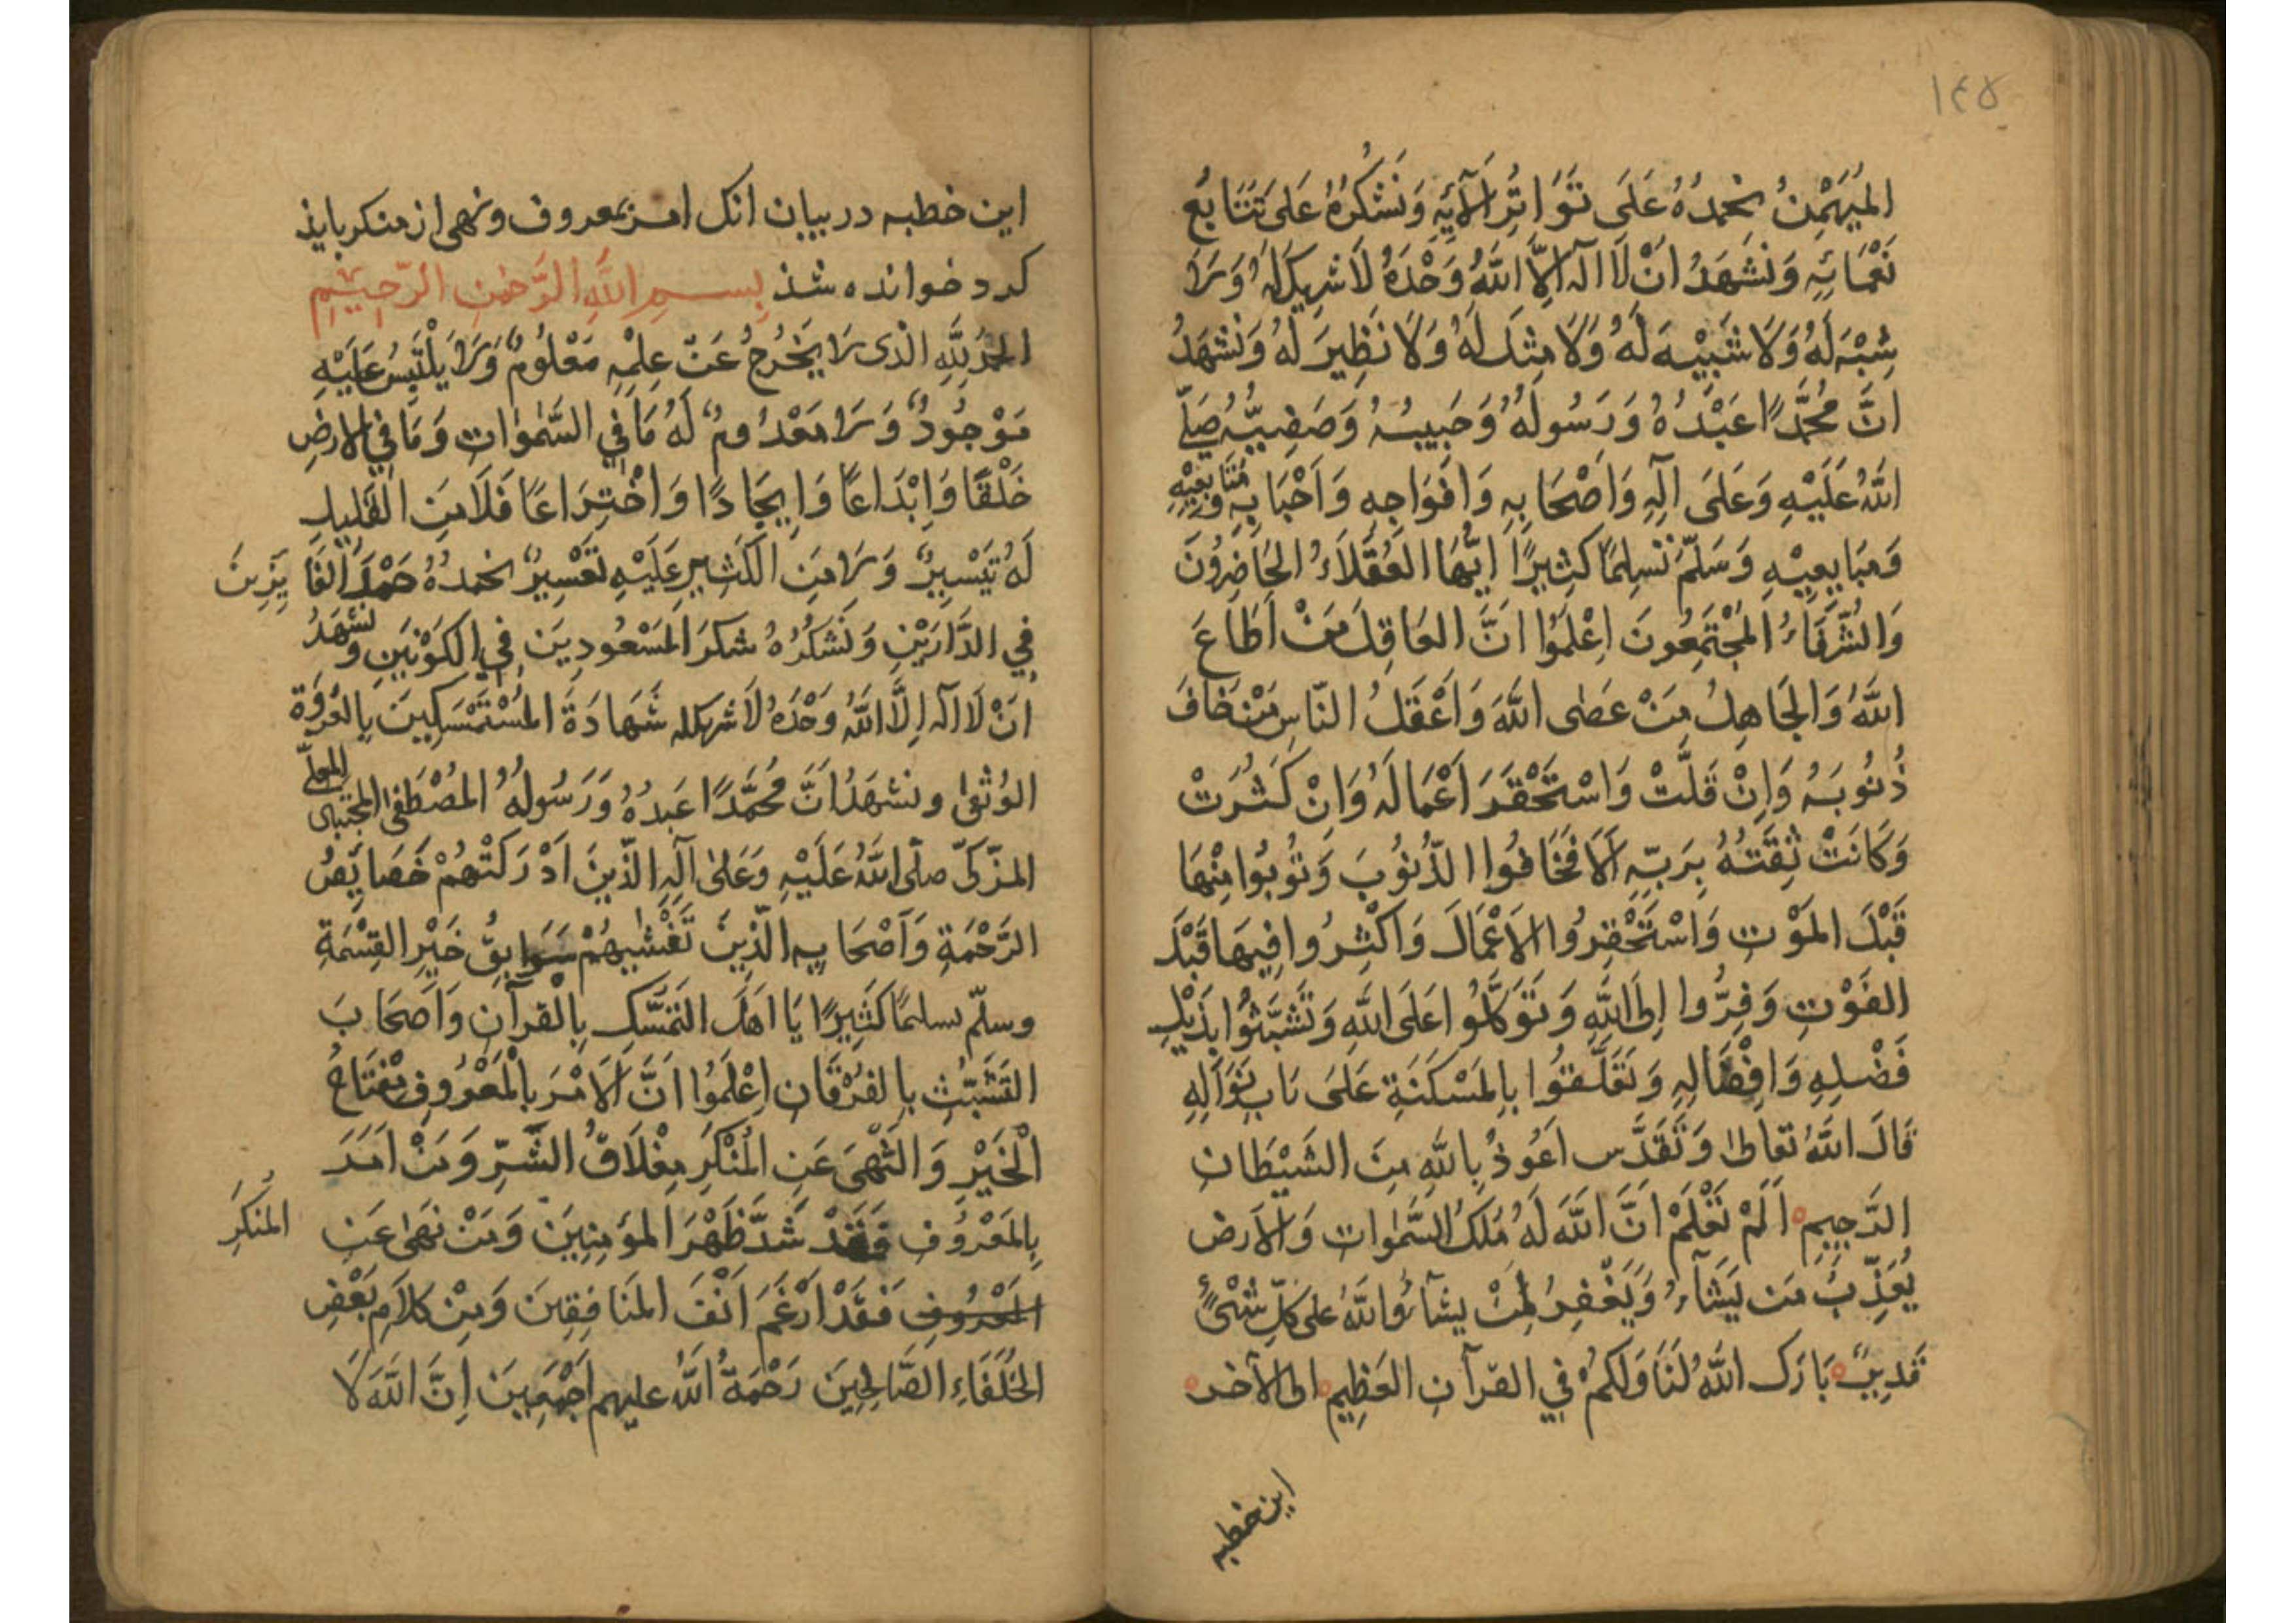 ١٤٥
المُهَيْمِنُ نَحْمَدُهُ عَلَى تَوَاتُرِ آلَآئِهِ وَنَشْكُرُهُ عَلَى تَتَابُعِ
نَعْمَائِهِ وَنَشْهَدُ اَنْ لَا اله اِلَّا اللهُ وَحْدَهُ لَا شَرِيكَ لَهُ وَلَا
شِبْهَ لَهُ وَلَا شَبِيْهَ لَهُ وَلَا مِثْلَ لَهُ وَلَا نَظِيرَ لَهُ وَنَشْهَدُ
اَنَّ مُحَمَّدًا عَبْدُهُ وَرَسُولُهُ وَحَبِيبُهُ وَصَفِيُّهُ صَلَّى
اللهُ عَلَيْهِ وَعَلَى آلِهِ وَاَصْحَابِهِ وَاَفْوَاجِهِ وَاَحْبَابِهِ وَمُتَابِعِيْهِ
وَمُبَايِعِيْهِ وَسَلَّمَ تَسْلِيمًا كَثِيرًا اَيُّهَا العُقَلَاءُ الحَاضِرُونَ
وَالشُّرَفَاءُ المُجْتَمِعُونَ اِعْلَمُوا اَنَّ العَاقِلَ مَنْ اَطَاعَ
اللهَ وَالجَاهِلُ مَنْ عَصٰى اللهَ وَاَعْقَلُ النَّاسِ مَنْ خَافَ
ذُنُوبَهُ وَاِنْ قَلَّتْ وَاسْتَحْقَرَ اَعْمَالَهُ وَاِنْ كَثُرَتْ
وَكَانَتْ ثِقَتُهُ بِرَبِّهِ اَلَا فَخَافُوا الذُّنُوبَ وَتُوبُوا مِنْهَا
قَبْلَ المَوْتِ وَاسْتَحْقِرُوا الاَعْمَالَ وَاَكْثِرُوا فِيهَا قَبْلَ
الفَوْتِ وَفِرُّوا اِلَى اللهِ وَتَوَكَّلُوا عَلَى اللهِ وَتَشَبَّثُوا بِذَيْلِ
فَضْلِهِ وَاِفْضَالِهِ وَتَعَلَّقُوا بِالمَسْكَنَةِ عَلَى بَابِ نَوَالِهِ
قَالَ اللهُ تَعَالىٰ وَتَقَدَّس اَعُوذُ بِاللهِ مِنَ الشَّيْطَانِ
الرَّجِيمِ اَلَمْ تَعْلَمْ اَنَّ اللهَ لَهُ مُلْكُ السَّمٰوَاتِ وَالاَرضِ
يُعَذِّبُ مَن يَشَآءُ وَيَغْفِرُ لِمَنْ يشآءُ وَاللهُ على كُلِّ شَىْءٍ
قَدِيرٌ بَارَك اللهُ لَنَا وَلَكُمْ فِي القرآنِ العَظِيمِ الى الآخر
اين خطبه
اين خطبه در بيان انك امر بمعروف ونهى از منكر بايذ
كرد خوانده شذ بِسـمِ اللهِ الرَّحْمٰنِ الرَّحِيْمِ
الحَمْدُ لِلّٰهِ الَّذى لَا يَخْرُجُ عَنْ عِلْمِهِ مَعْلُومٌ وَلَا يَلْتَبِسُ عَلَيْهِ
مَوْجُودٌ وَلَا مَعْدُومٌ لَهُ مَا فِي السَّمٰوَاتِ وَمَا فِي الارضِ
خَلْقًا وَاِبْدَاعًا وَاِيجَادًا وَاخْتِرَاعًا فَلَا مِنَ القَلِيلِ
لَهُ تَيْسِيرٌ وَلَا مِنَ الكَثِيرِ عَلَيْهِ تَعْسِيرٌ نحمدُهُ حَمْدَ الفَايِزِينَ
فِي الدَّارَيْنِ وَنَشْكُرُهُ شكرَ المَسْعُودِينَ فِي الكَوْنَيْنِ وَنشْهَدُ
اَنْ لَا اله اِلَّا اللهُ وَحْدَهُ لَا شريك له شَهَادَةَ المُسْتَمْسِكِينَ بِالعُرْوَةِ
الوُثْقىٰ ونشهَدُ اَنَّ مُحَمَّدًا عَبدُهُ وَرَسُولُهُ المُصْطَفىٰ المُجْتَبٰى المعلّى
المزكّى صلّى اللهُ عَلَيْهِ وَعَلىٰ آلِهِ الَّذِينَ اَدْرَكَتْهُمْ خَصَايِصُ
الرَّحْمَةِ وَاَصْحَابِهِ الَّذِينَ تَغْشٰيهُمْ سَوَابِقُ خَيْرِ القِسْمَةِ
وسلّم تسليمًا كَثِيرًا يَا اَهْلَ التَمَسُّكِ بِالْقرآنِ وَاَصْحَابَ
التَّشَبُّثِ بِالفُرْقَانِ اِعْلَمُوا اَنَّ الاَمْرَ بِالْمَعْرُوفِ مِفْتَاحُ
الْخَيْرِ وَالنَّهْىَ عَنِ المُنْكَرِ مِغْلَاقُ الشَّرِّ وَمَنْ اَمَرَ
بِالمَعْرُوفِ فَقَدْ شَدَّ ظَهْرَ المُؤمِنِينَ وَمَنْ نَهٰى عَنِ المُنكَرِ
المَعْرُوفِ فَقَدْ اَرْغَمَ اَنْفَ المُنَافِقِينَ وَمِنْ كَلَامِ بَعْضِ
الخُلَفَاءِ الصَّالِحِينَ رَحْمَةُ اللهُ عليهم اَجْمَعِينَ اِنَّ اللهَ لَا